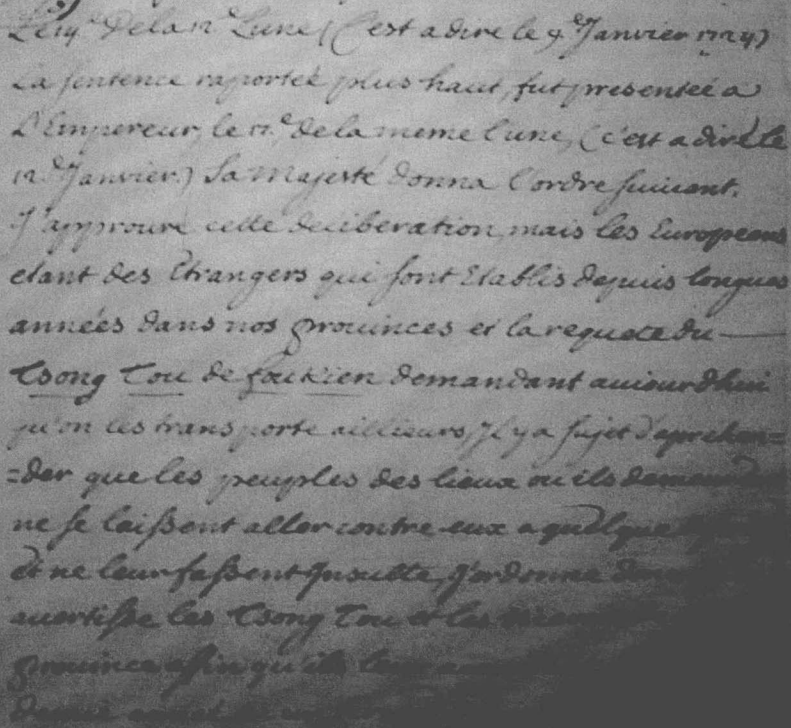 Le 14e. de la 12e Lune (C'est a dire le 9e. Janvier 1724)
La sentence raportée plus haut, fut presentée a
L'Empereur, le 17.e de la meme lune, (c'est a dire le
12e Janvier.) Sa Majesté donna l'ordre suivant.
J'approuve cette deliberation, mais les Europeens
etant des Etrangers qui sont Etablis depuis longues
années dans nos provinces et la requete du
Tsong Tou de foukien demandant aujourdhui
qu'on les transporte ailleurs, Il y a sujet d'aprehen=
=der que les peuples des lieux ou ils
ne se laissent aller contre eux a quelque
et ne leur fassent Insulte, J'ordonne
avertisse les Tsong Tou et les
province affin qu'ils